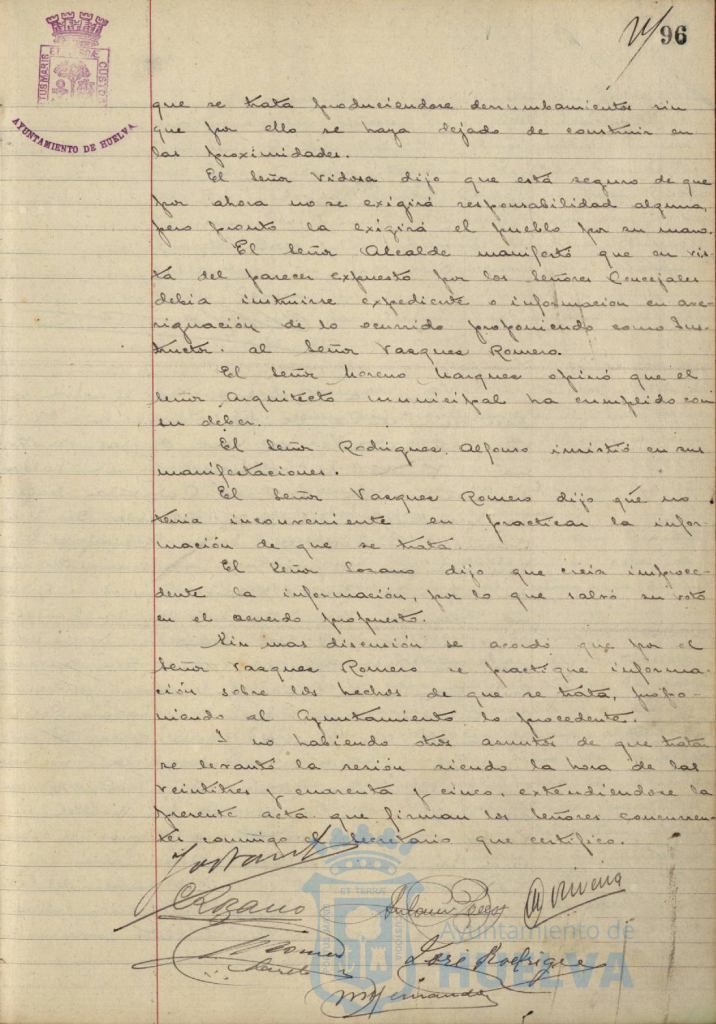 96
AYUNTAMIENTO DE HUELVA
que se trata produciendose derrumbamientos sin
que por ello se haya dejado de construir en
las proximidades.
El Señor Vidosa dijo que está seguro de que
por ahora no se exigirá responsabilidad alguna,
pero pronto la exigirá el pueblo por su mano.
El Señor Alcalde manifestó que en vis-
ta del parecer expuesto por los Señores Concejales
debia instruirse expediente o informacion en ave-
riguación de lo ocurrido proponiendo como Ins-
tructor al Señor Vasquez Romero.
El Señor Moreno Marquez opinó que el
Señor Arquitecto municipal ha cumplido con
su deber.
El Señor Rodriguez Alfonso insistió en sus
manifestaciones.
El Señor Vasquez Romero dijo que no
tenia inconveniente en practicar la infor-
mación de que se trata.
El Señor Lozano dijo que creia improce-
dente la información, por lo que salvó su voto
en el acuerdo propuesto.
Sin mas discusión se acordó que por el
Señor Vasquez Romero se practique informa-
ción sobre los hechos de que se trata, propo-
niendo al Ayuntamiento lo procedente.
Y no habiendo otros asuntos de que tratar
se levantó la sesión siendo la hora de las
veintitres y cuarenta y cinco, extendiendose la
presente acta que firman los Señores concurren-
tes conmigo el Secretario que certifico.
Lozano
José Rodriguez
Ayuntamiento de
HUELVA